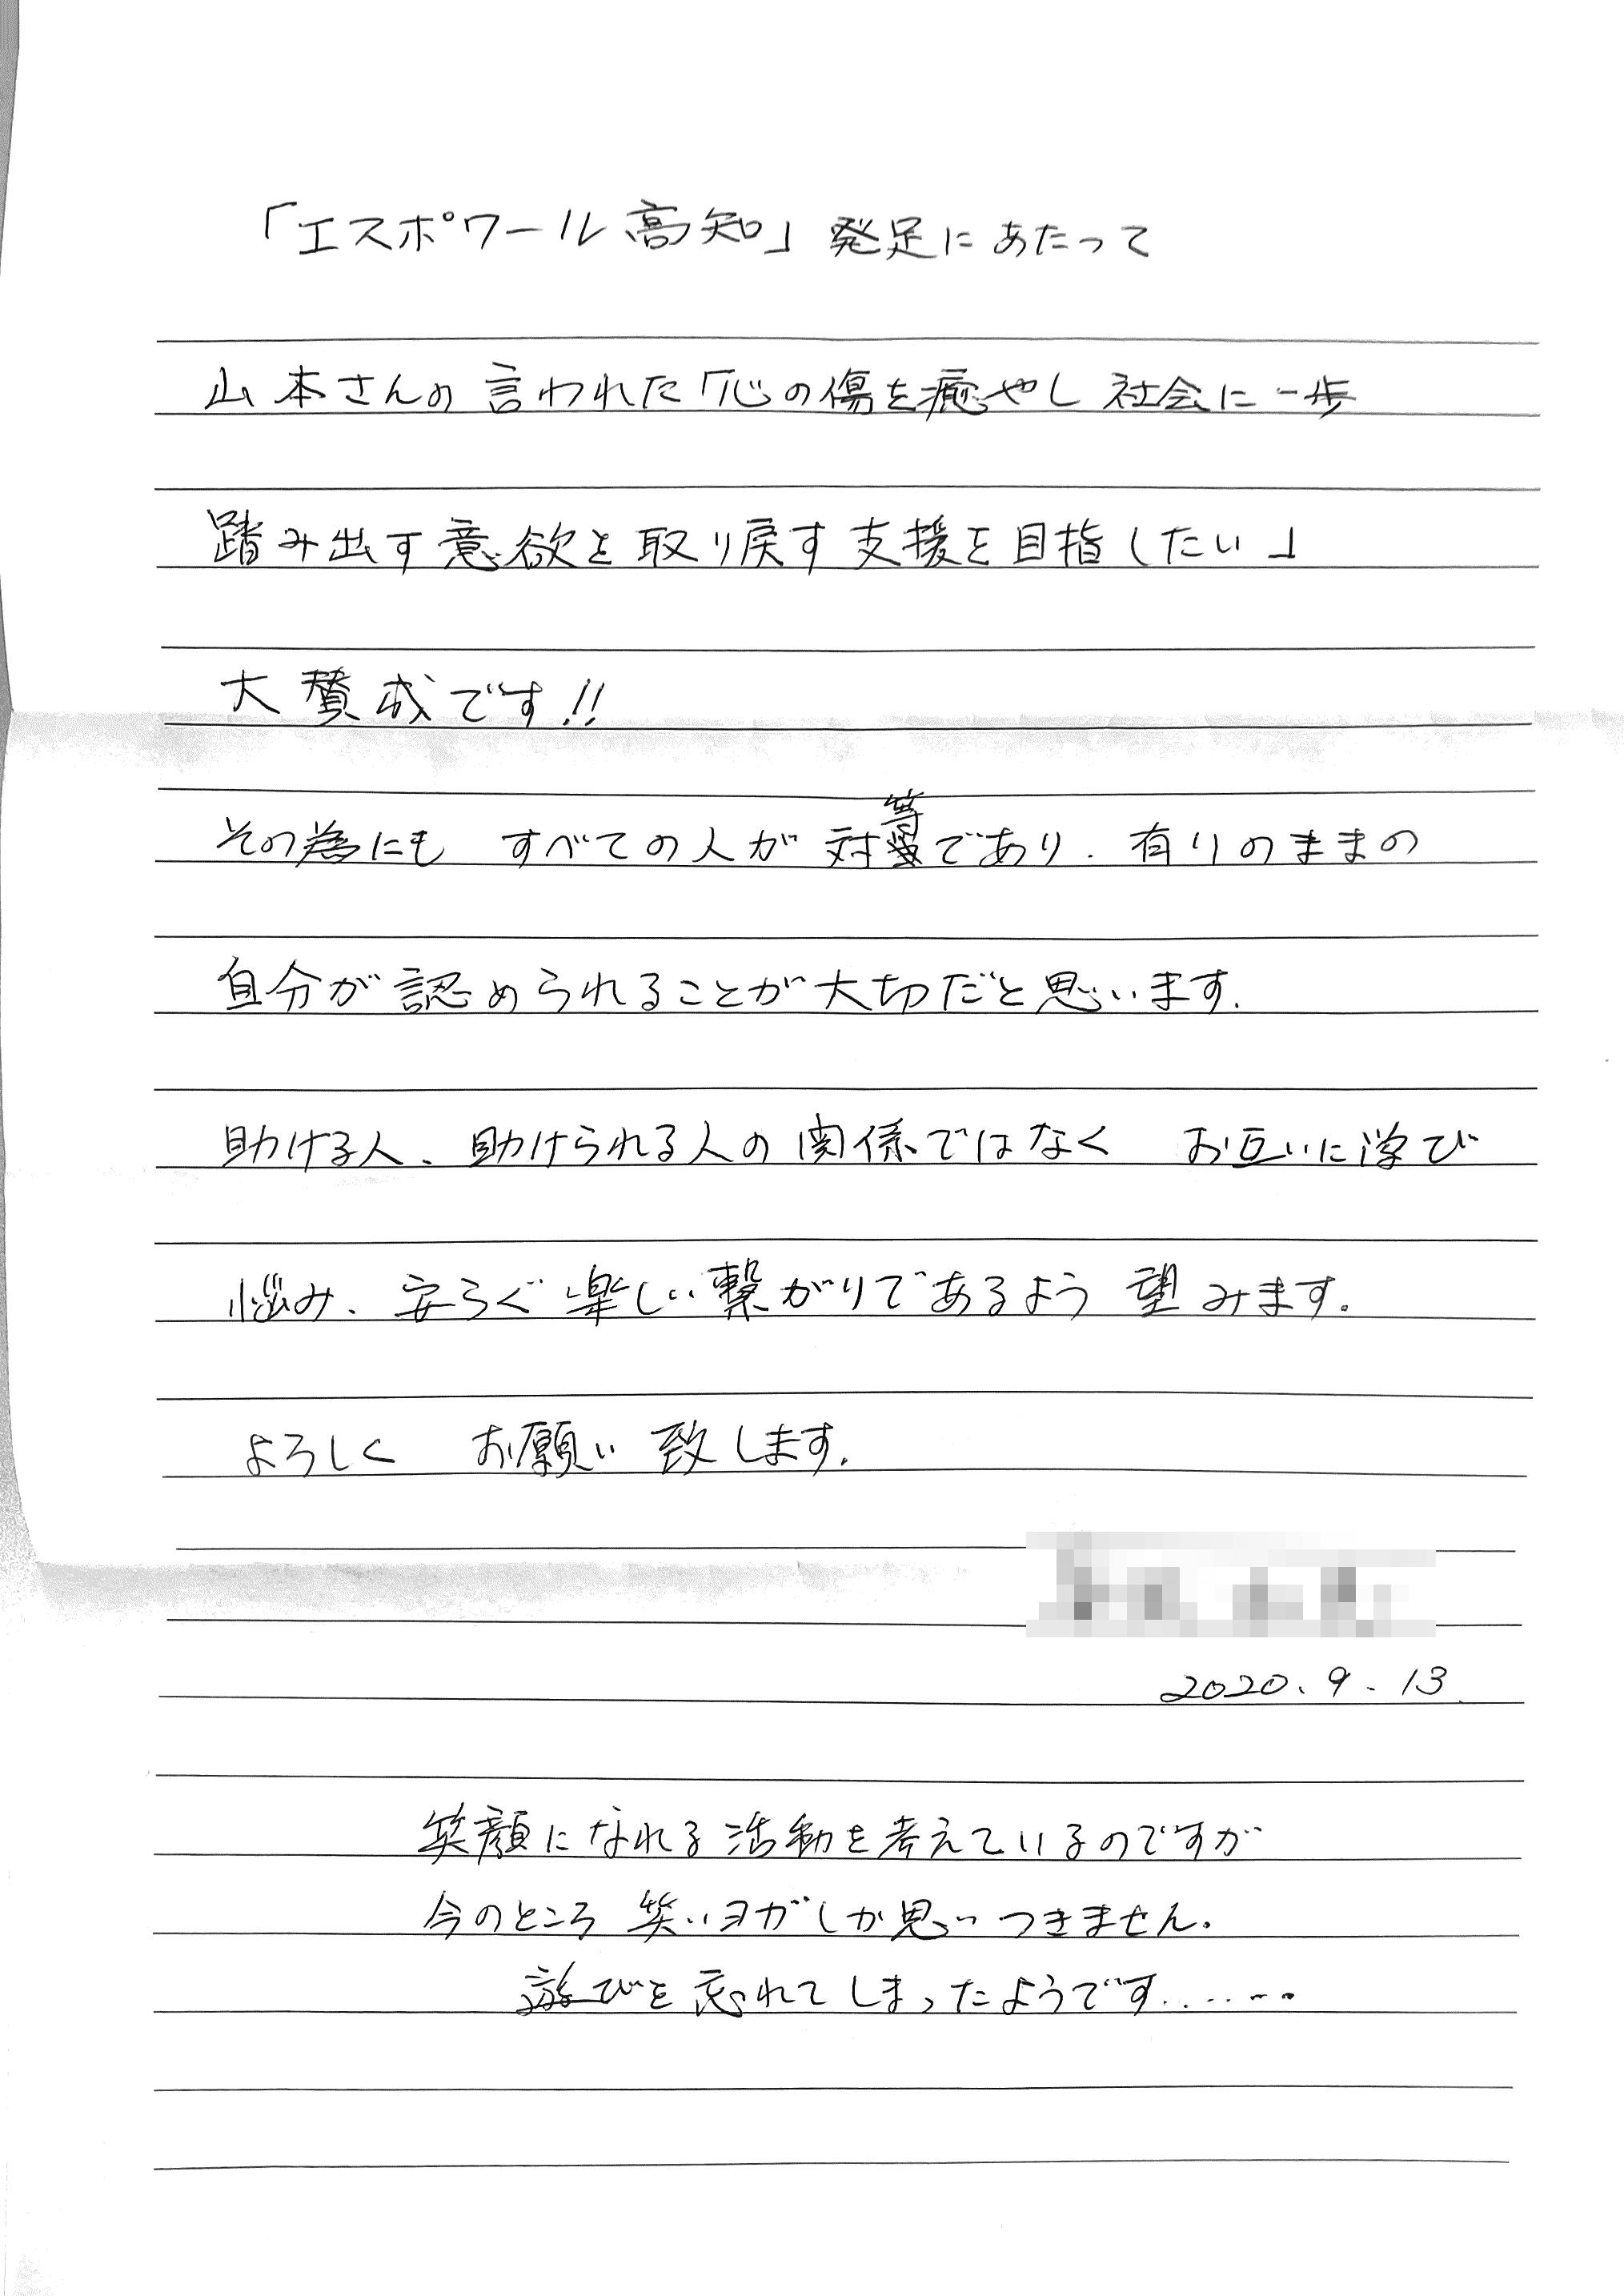 「エスポワール高知」発足にあたって
山本さんの言われた「心の傷を癒やし 社会に一歩
踏み出す意欲を取り戻す支援を目指したい」
大賛成です!!
その為にも すべての人が対等であり、有りのままの
自分が認められることが大切だと思います。
助ける人、助けられる人の関係ではなく お互いに学び
悩み、安らぐ楽しい繋がりであるよう望みます。
よろしく お願い致します。
2020.9.13
笑顔になれる活動を考えているのですが
今のところ 笑いヨガしか思いつきません。
遊びを忘れてしまったようです.......